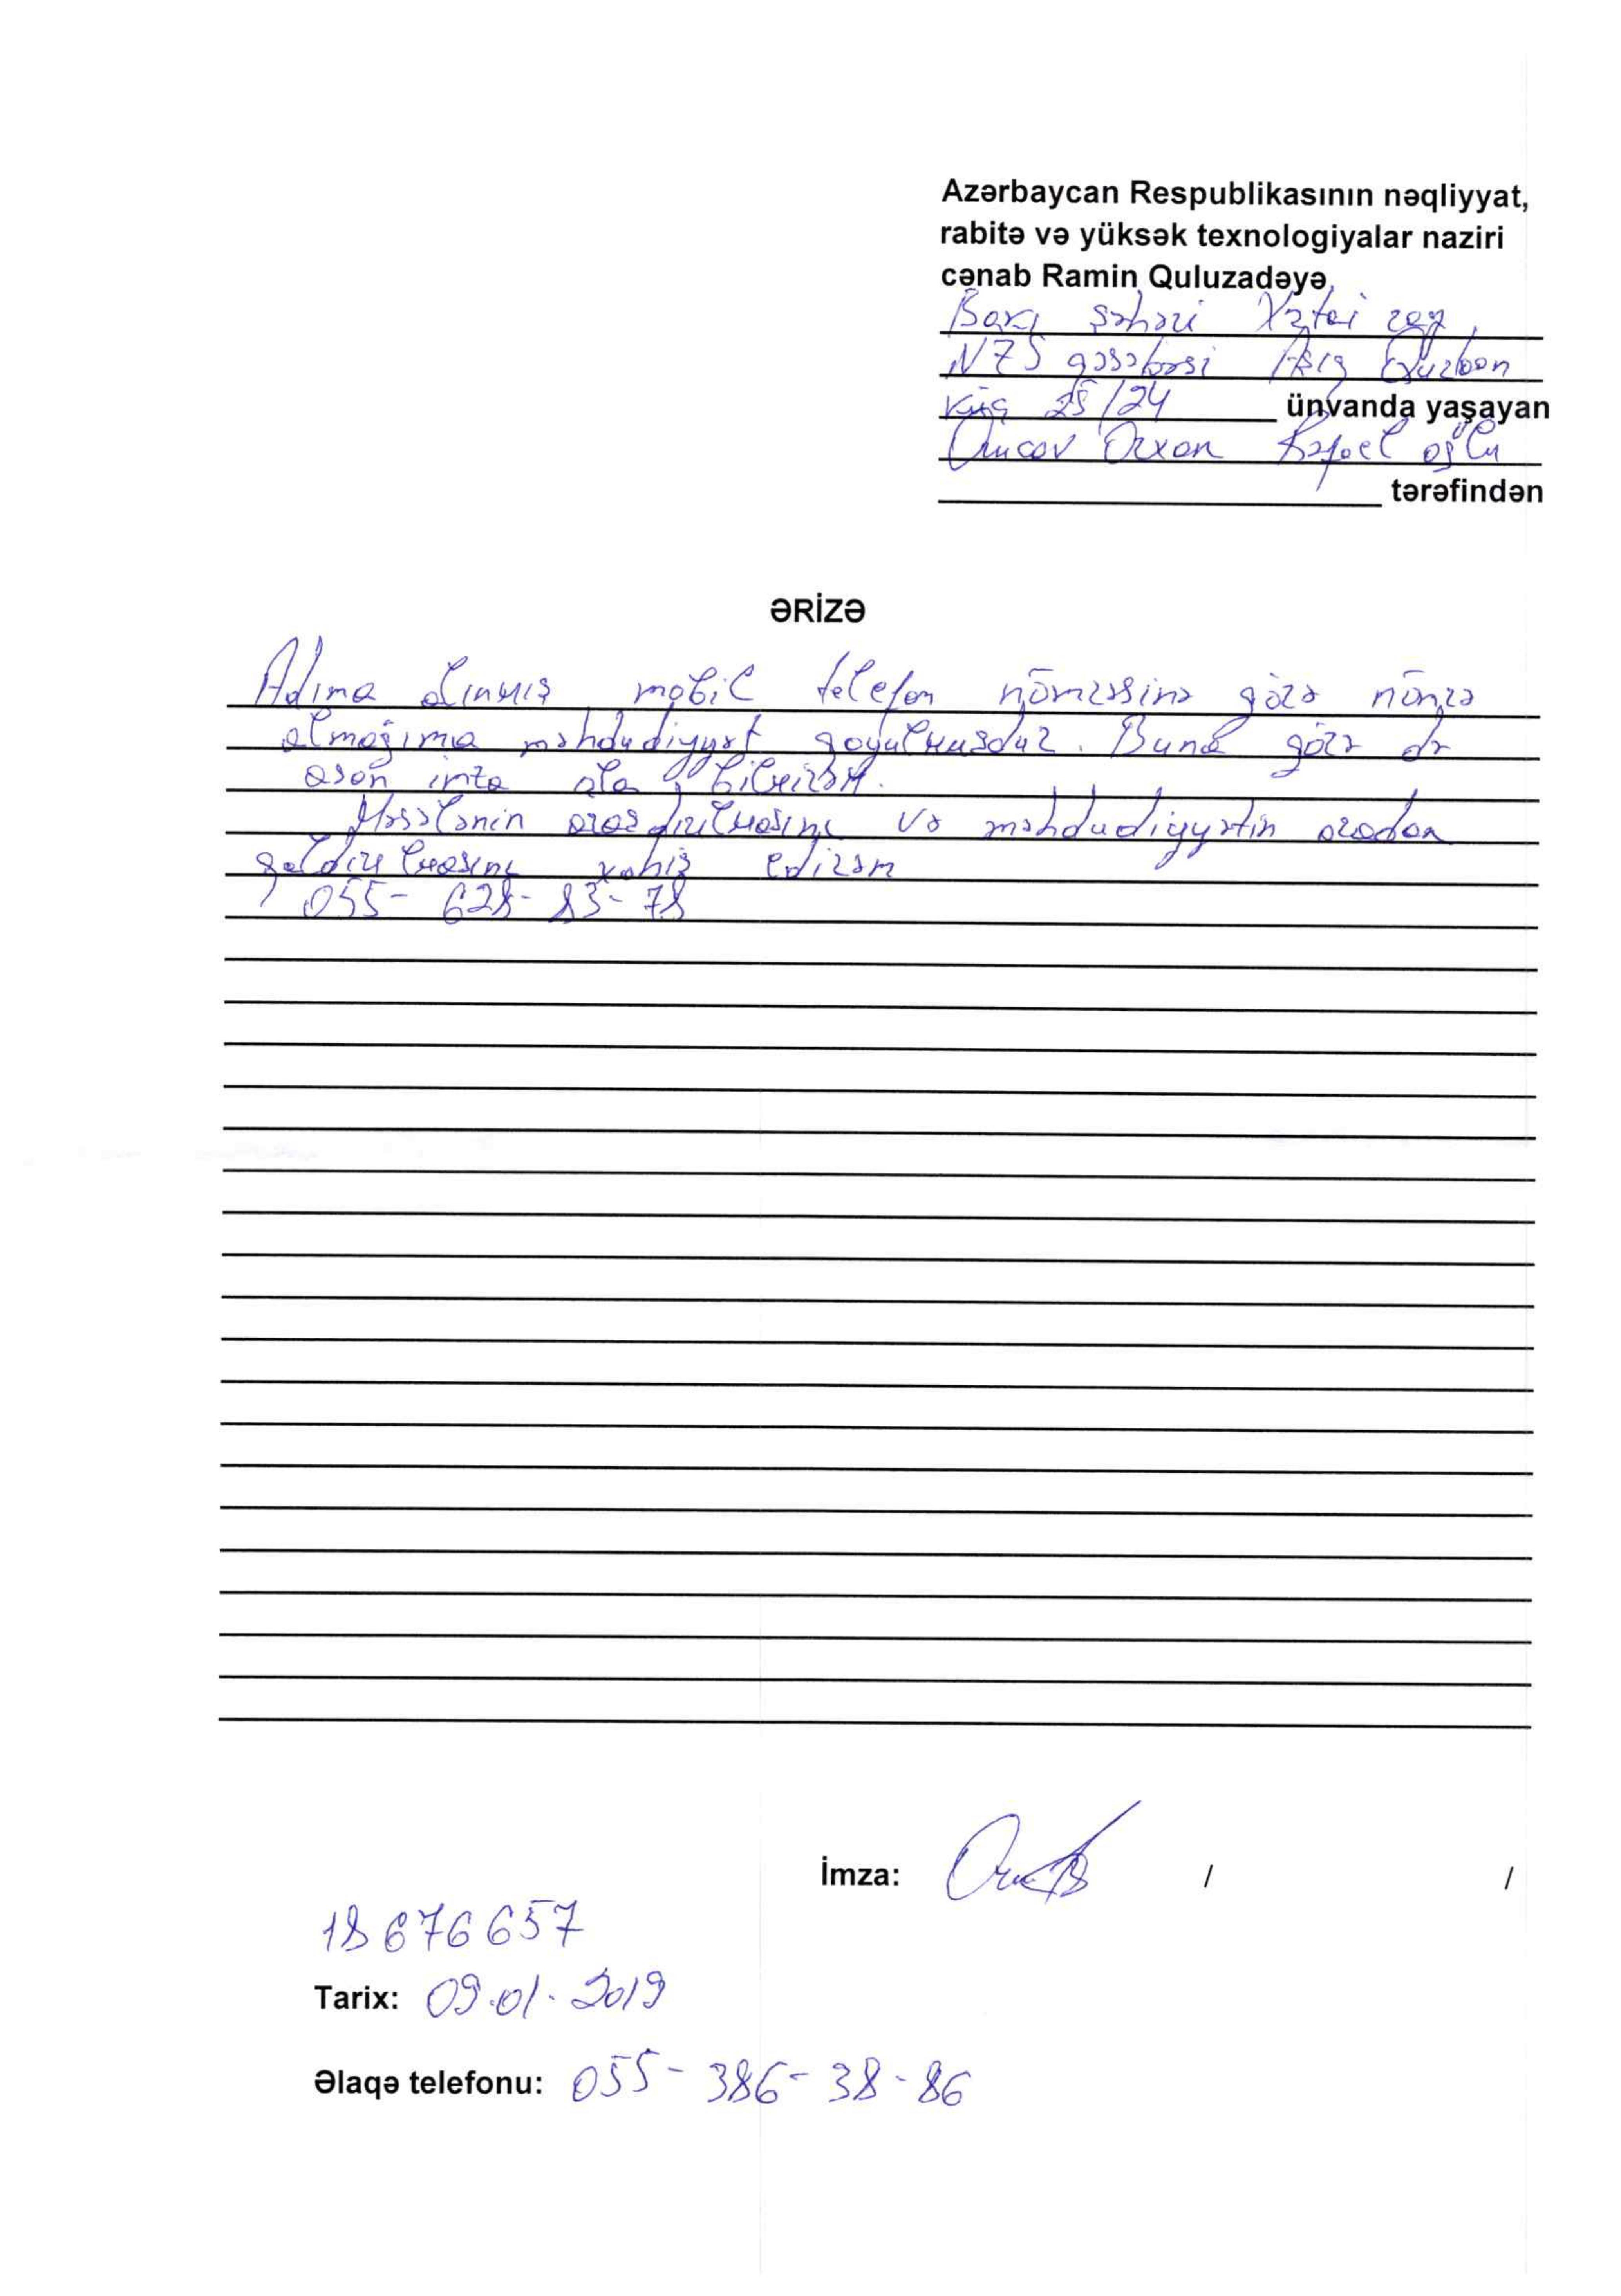 Azərbaycan Respublikasının nəqliyyat,
rabitə və yüksək texnologiyalar naziri
cənab Ramin Quluzadəyə
Bakı şəhəri Xətai ray
NZS qəsəbəsi Aşıq Qurban
küç 25/24 ünvanda yaşayan
Orucov Orxan Rafael oğlu
tərəfindən
ƏRİZƏ
Adıma alınmış mobil telefon nömrəsinə görə nömrə
almağıma məhdudiyyət qoyulmuşdur. Buna görə də
asan imza ala bilmirəm.
Məsələnin araşdırılmasını və məhdudiyyətin aradan
qaldırılmasını xahiş edirəm
055- 628- 83- 78
İmza: / /
18676657
Tarix: 09.01.2019
Əlaqə telefonu: 055- 386- 38- 86